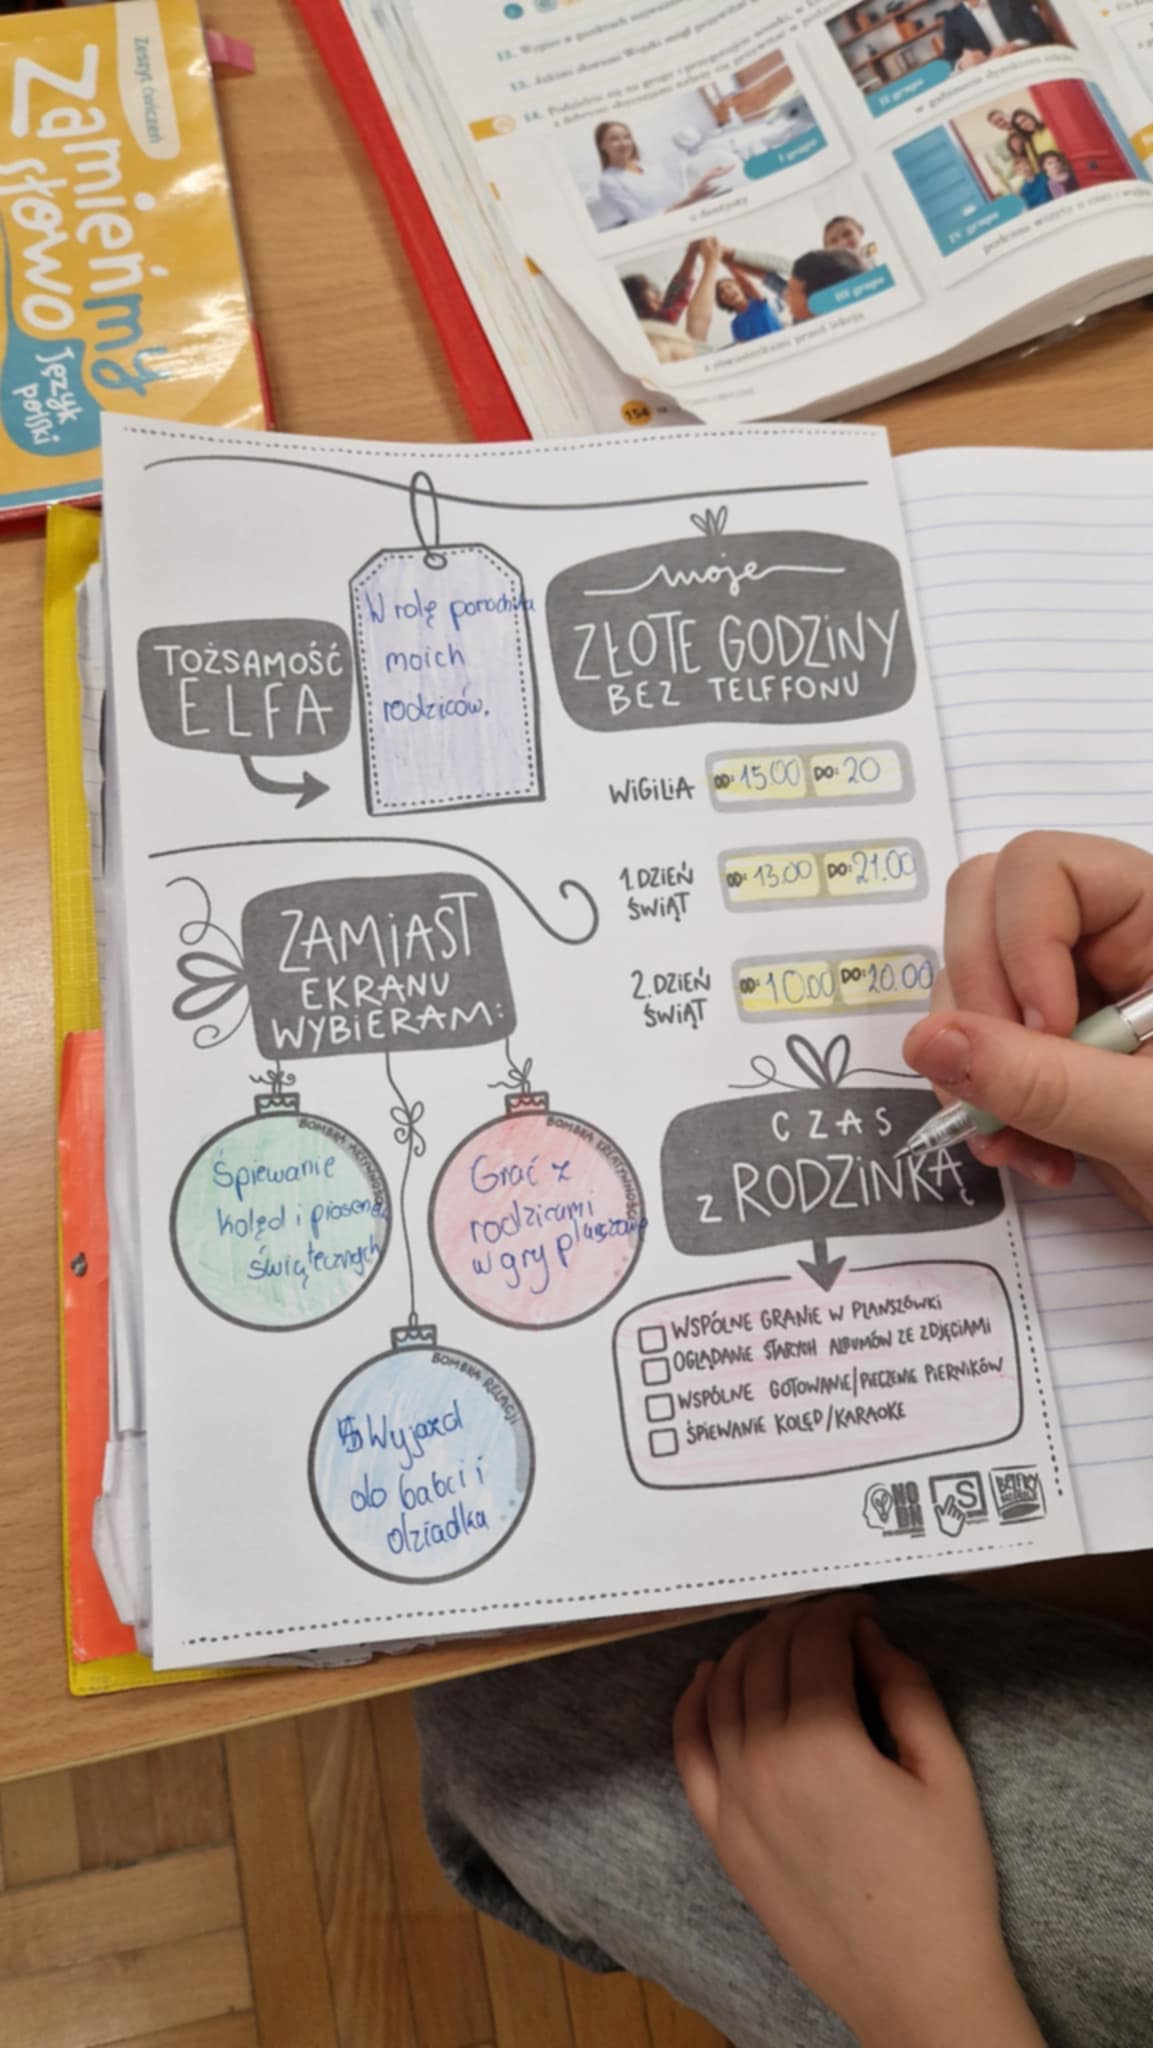 Zeszyt ćwiczeń
Zamieńmy
słowo
Język
polski
I grupa
u dentysty
II grupa
w gabinecie dyrektora szkoły
III grupa
z rówieśnikami przed lekcją
IV grupa
154
TOŻSAMOŚĆ
ELFA
W rolę
moich
rodziców.
moje
ZŁOTE GODZINY
BEZ TELFFONU
WIGILIA OD: 15.00 DO: 20
1.DZIEŃ
ŚWIĄT
OD: 13.00 DO: 21.00
2.DZIEŃ
ŚWIĄT
OD: 10.00 DO: 20.00
ZAMIAST
EKRANU
WYBIERAM:
BOMBKA AKTYWNOŚCI
Śpiewanie
kolęd i
świątecznych
BOMBKA KREATYWNOŚCI
Grać z
rodzicami
w gry
BOMBKA RELACJI
Wyjazd
do babci i
dziadka
CZAS
Z RODZINKĄ
WSPÓLNE GRANIE W PLANSZÓWKI
OGLĄDANIE STARYCH ALBUMÓW ZE ZDJĘCIAMI
WSPÓLNE GOTOWANIE/PIECZENIE PIERNIKÓW
ŚPIEWANIE KOLĘD/KARAOKE
S